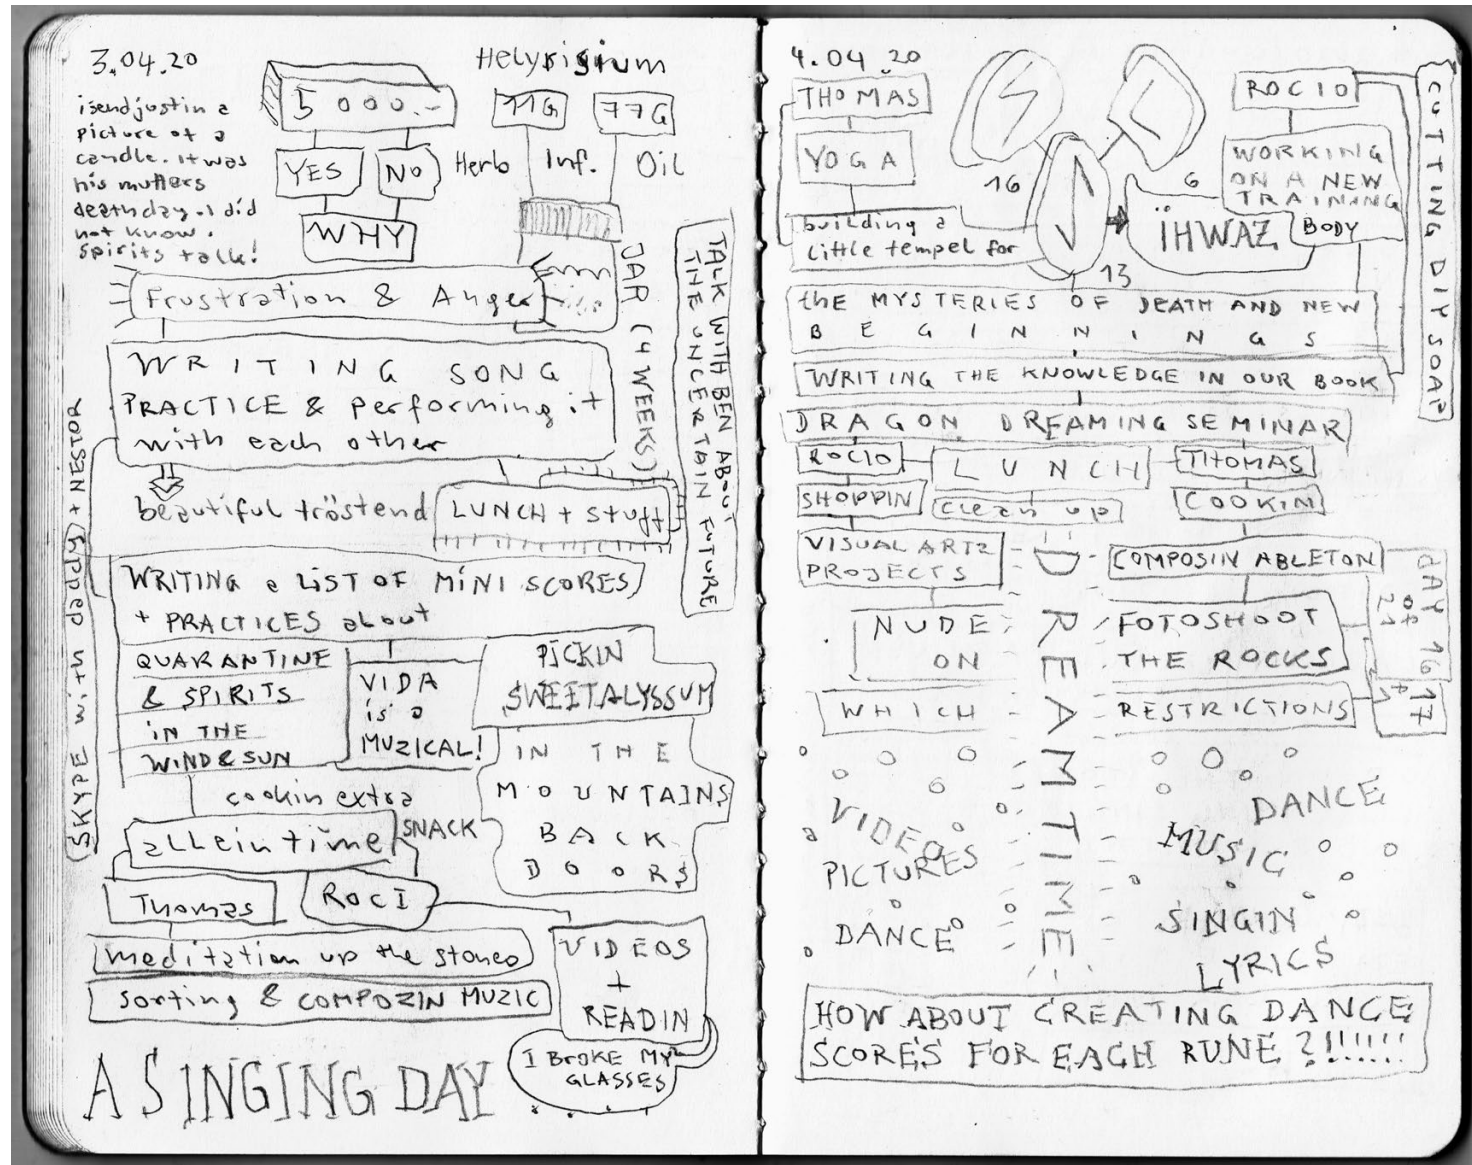 3.04.20
i send justin a
picture of a
candle. it was
his mutters
deathday. I did
not know.
spirits talk!
5000.-
YES
NO
WHY
Helyrisium
11G
77G
Herb Inf. Oil
JAR (4 WEEKS)
TALK WITH BEN ABOUT
THE UNCERTAIN FUTURE
Frustration & Anger
WRITING SONG
PRACTICE & performing it
with each other
beautiful tröstend
LUNCH + stuff
SKYPE with daddy + NESTOR
WRITING a LIST OF MINI SCORES
+ PRACTICES about
QUARANTINE
& SPIRITS
IN THE
WIND & SUN
VIDA
is a
MUZICAL!
PICKIN
SWEETALYSSUM
IN THE
MOUNTAINS
BACK
DOORS
cookin extra
SNACK
allein time
Thomas
ROCI
meditation up the stones
sorting & COMPOZIN MUZIC
VIDEOS
+
READIN
I BROKE MY
GLASSES
A SINGING DAY
4.04.20
THOMAS
YOGA
building a
little tempel for
16
13
6
ÏHWAZ
ROCIO
WORKING
ON A NEW
TRAINING
BODY
CUTTING DIY SOAP
the MYSTERIES OF DEATH AND NEW
BEGINNINGS
WRITING THE KNOWLEDGE IN OUR BOOK
DRAGON DREAMING SEMINAR
ROCIO
LUNCH
THOMAS
SHOPPIN
clean up
COOKIN
VISUAL ARTZ
PROJECTS
COMPOSIN ABLETON
NUDE
ON
FOTOSHOOT
THE ROCKS
WHICH
RESTRICTIONS
DAY 16
17
DREAMTIME
VIDEO
PICTURES
DANCE
DANCE
MUSIC
SINGIN
LYRICS
HOW ABOUT CREATING DANCE
SCORES FOR EACH RUNE?!!!!!!